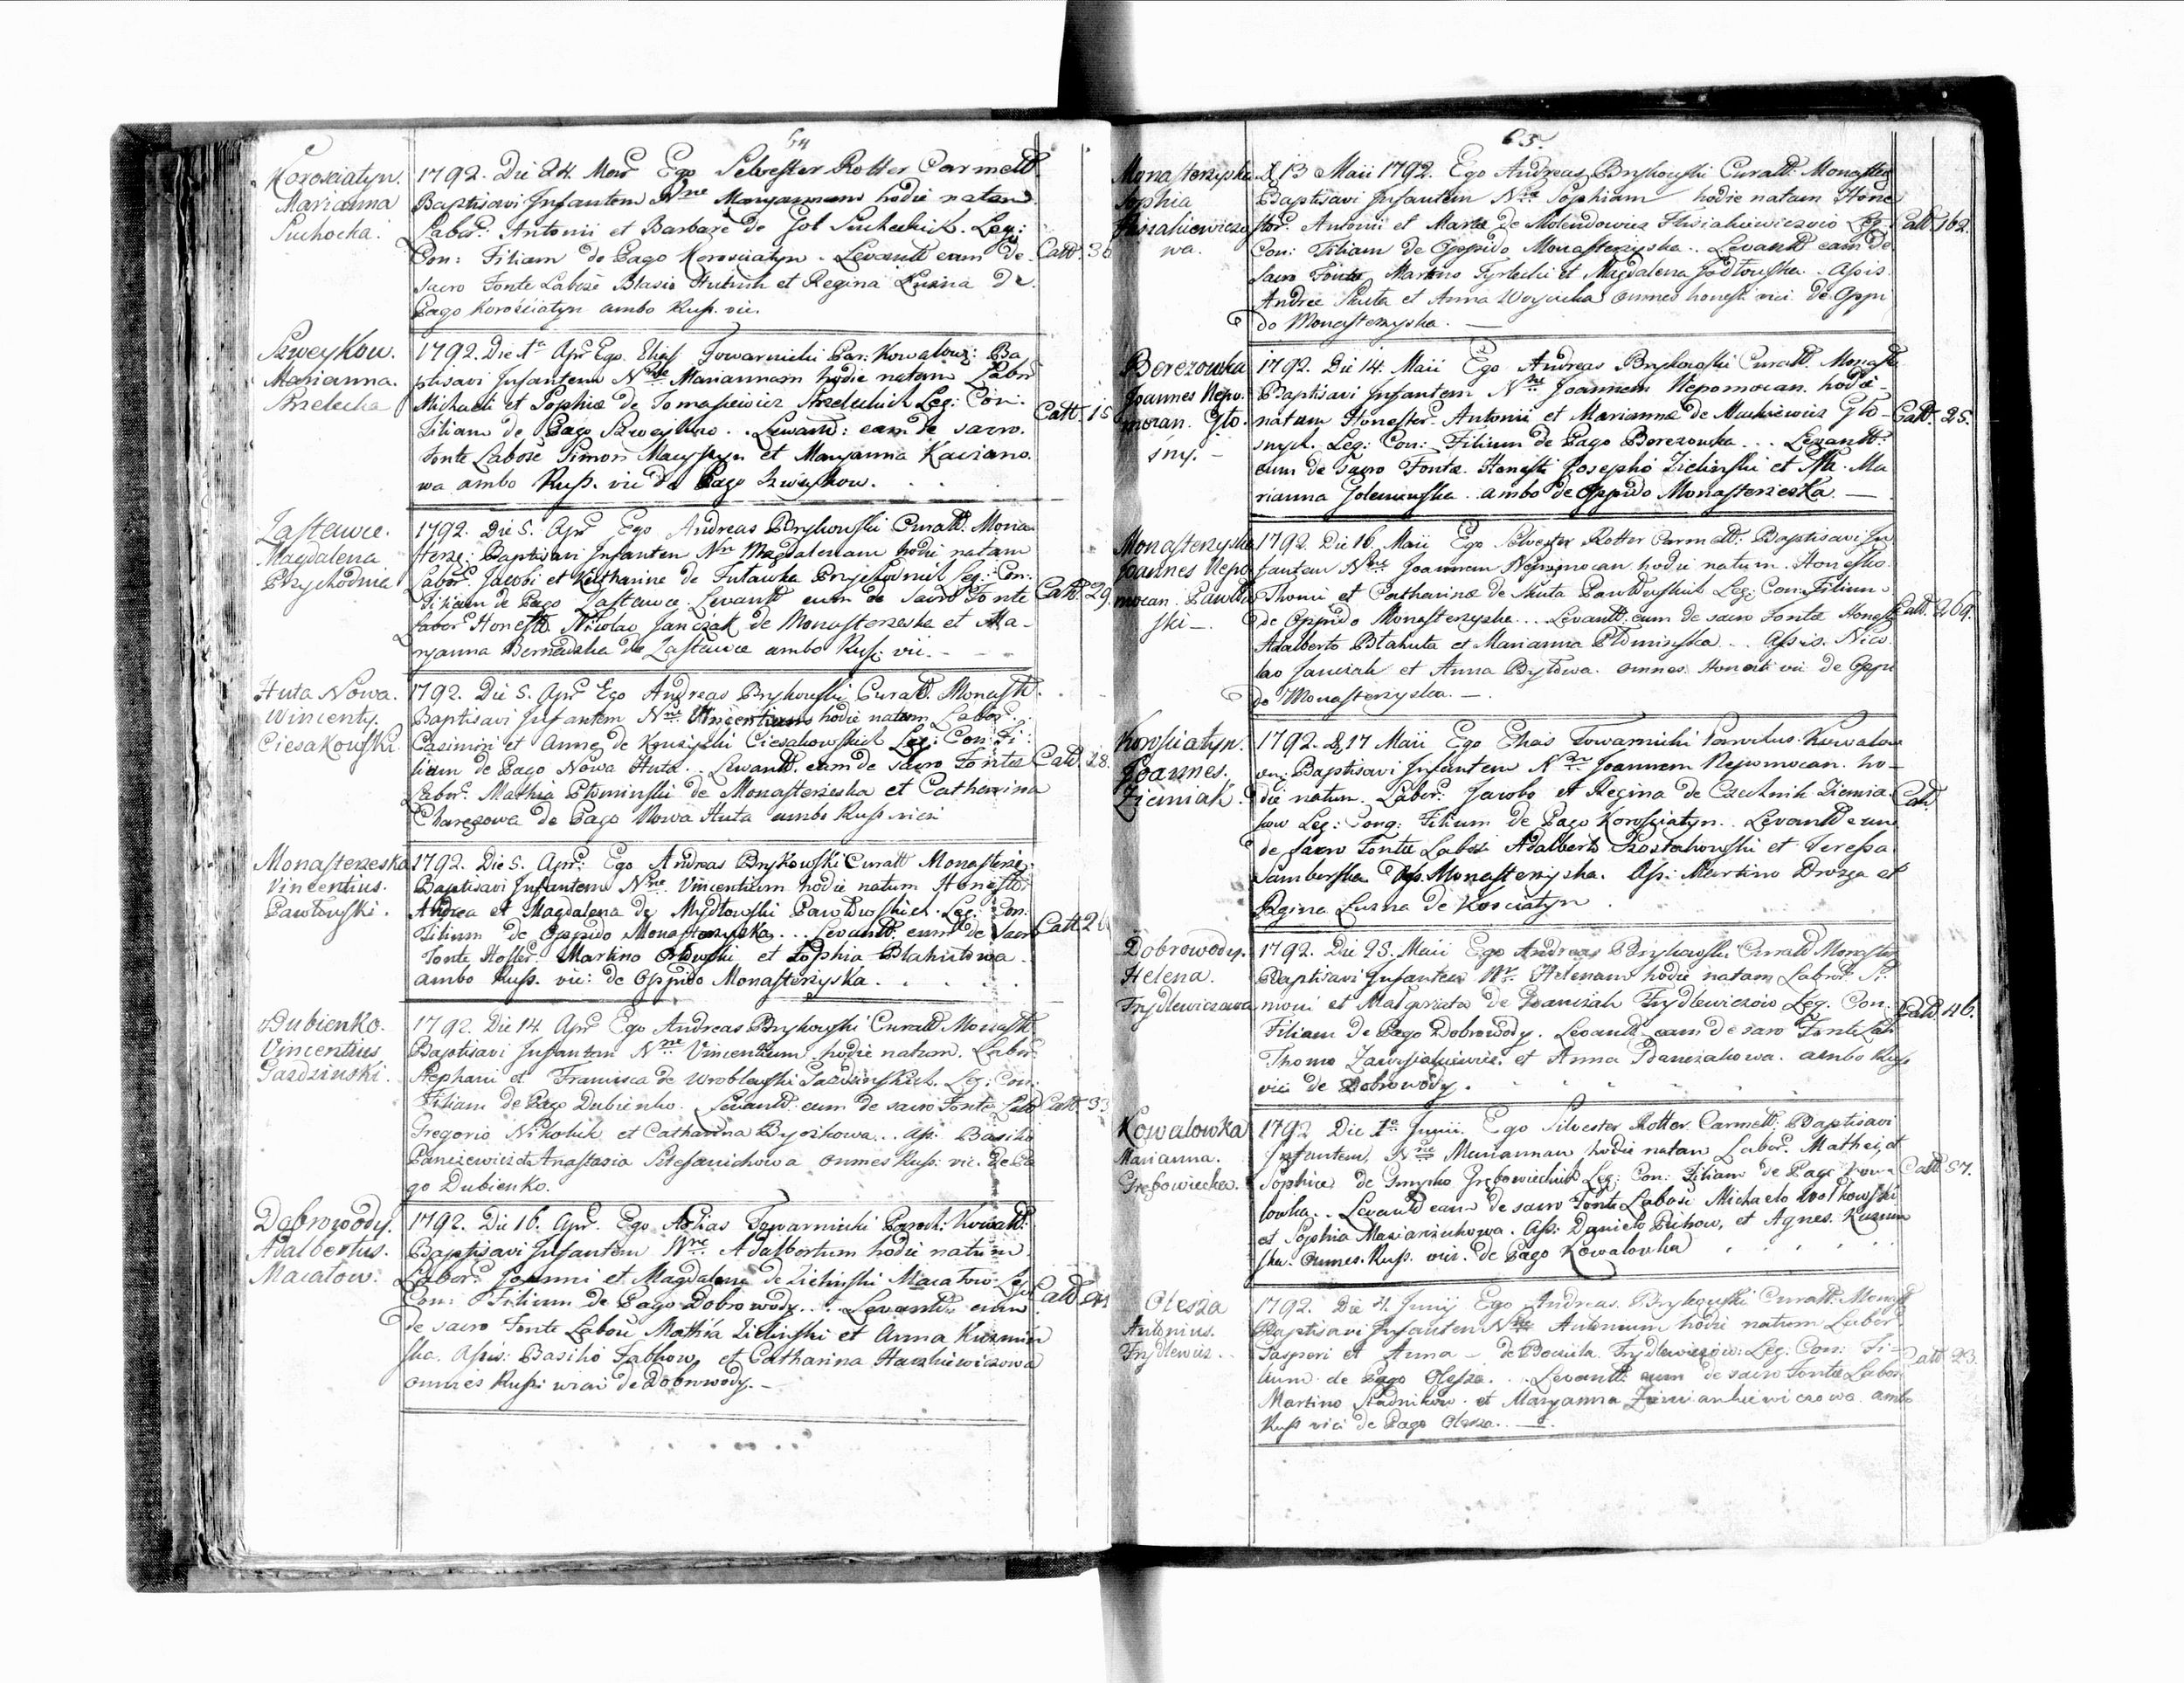 64
Korosciatyn.
Marianna
Suchocka.
1792. Die 24. Mar. Ego Selvester Rotter Carmelt.
Baptisavi Infantem Nne Maryannam hodie natam
Labor. Antonii et Barbare de Goł Suchockich. Leg:
Con: Filiam de Pago Korosciatyn. Levantt eam de
Catt. 36
Sacro Fonte Labose Blasio et Regina Luzna de
Pago Korosciatyn ambo Rust. vic.
Szweykow.
Marianna.
Strzelecka
1792. Die 1a Apr Ego Elias Towarnicki Par: Kowalow: Ba
ptisavi Infantem Nne Mariannam hodie natam Labor
Michaeli et Sophia de Tomasiewicz Strzeleckich Leg: Con:
Filiam de Pago Szweykow. Levantt: eam de sacro
Catt. 15
Fonte Labose Simon et Maryanna Kaczano
wa ambo Rust. vic de Pago Szweykow.
Zastawce.
Magdalena
Przychodnia
1792. Die 5. Apr Ego Andreas Brykowski Curatt. Mona
sterze: Baptisavi Infantem Nn Magdalenam hodie natam
Labor. Jacobi et Katharine de Futawka Przychodnich Leg: Con:
Filiam de Pago Zastawce. Levantt eam de Sacro Fonte
Catt. 29.
Labor Honestt. Nicolao Janczak de Monasterzeska et Ma-
ryanna de Zastawce ambo Rust. vic.
Huta Nowa.
Wincenty.
Ciesakowski
1792. Die 5. Apr Ego Andreas Brykowski Curatt. Monastt.
Baptisavi Infantem Nne Vincentium hodie natum Labor.
Casimiri et Anne de Ciesakowskich Leg: Con: Fi
lium de Pago Nowa Huta. Levantt. eum de Sacro Fonte
Catt. 28.
Labor. Mathia Płominski de Monasterzeska et Catharina
de Pago Nowa Huta ambo Rust vici
Monasterzeska
Vincentius.
Pawłowski.
1792. Die 5. Apr: Ego Andreas Brykowski Curatt Monasterze.
Baptisavi Infantem Nne Vincentium hodie natum Honestor
Andrea et Magdalena de Mydłowski Pawłowskich. Leg: Con:
Filium de Oppido Monasterzyska... Levantt. eum de Sacro
Catt. 2
Fonte Martino Orłowski et Sophia Blahutowa
ambo Rust. vic: de Oppido Monasterzyska.
Dubienko.
Vincentius
Gazdzinski.
1792. Die 14. Apr Ego Andreas Brykowski Curatt Monastt
Baptisavi Infantem Nne Vincentium hodie natum. Labor
Stephani et Francisca de Wroblewski Gazdzinskich. Leg: Con:
Filium de Pago Dubienko. Levantt eum de sacro Fonte Labo
Catt. 3
Gregorio Nikoluk et Catharina. Ass: Basilio
et Anastasia Stefanichowa Omnes Rust: vic. de Pa
go Dubienko.
Dobrowody.
Adalbertus.
Macalow.
1792. Die 16. Apr. Ego Elias Towarnicki Paroch: Kowalo:
Baptisavi Infantem Nne. Adalbertum hodie natum
Labor. Joanni et Magdalena de Zielinski Macatow Leg
Con: Filium de Pago Dobrowody... Levantt. eum
Catt.
de sacro Fonte Labose Mathia Zielinski et Anna Kuzmin
ska. Assis: Basilio Jabkow et Catharina
omnes Rust: vici de Dobrowody.
65.
Monasterzyska
Sophia
wa.
D 13 Maii 1792. Ego Andreas Brykowski Curatt. Monaster
Baptisavi Infantem Nne Sophiam hodie natam Hone
stor. Antonii et Maria de Molendowicz Leg:
Catt. 162.
Con: Filiam de Oppido Monasterzyska. Levantt eam de
Sacro Fonte, Martino et Magdalena Jodłowska. Assis.
Andrea Skuta et Anna omnes honest: vici de Oppi
do Monasterzyska.
Berezowka
Joannes Nepo.
mucan. Gło.
sny.
1792. Die 14. Maii Ego Andreas Brykowski Curatt. Monast
Baptisavi Infantem Nne Joannem Nepomucan. hodie
natum Honestor. Antonii et Marianna de Mackiewicz Gło
Catt. 25.
snych. Leg: Con: Filium de Pago Berezowka... Levantt:
eum de Sacro Fonte. Honesti Josepho Zielinski et Ma
rianna ambo de Oppido Monasterzeska.
Monasterzyska
Joannes Nepo
mucan. Pawłow
ski.
1792. Die 16. Maii Ego Silvester Rotter Carmelt: Baptisavi In
fantem Nne Joannem Nepomucan. hodie natum. Honesto.
Thomi et Catharina de Skuta Pawłowskich Leg: Con: Filium
de Oppido Monasterzyska... Levantt. eum de sacro Fonte Honest
Catt. 269.
Adalberto Błahuta et Marianna Płominska... Assis. Nico
lao Janczak et Anna. omnes. Honesti vic de Oppi
do Monasterzyska.
Korosciatyn.
Joannes.
Ziemiak.
1792. D 17 Maii Ego Elias Towarnicki Parochus Kowalow
Baptisavi Infantem Nne Joannem Nepomucan. ho-
die natum. Labor: Jacobo et Regina de Czechnik Ziemia
Catt.
kow Leg: Cong: Filium de Pago Korosciatyn. Levantt eum
de sacro Fonte Labos Adalberto et Teressa
Samborska Opp. Monasterzyska. Ass: Martino Drozga et
Regina Luzna de Kosciatyn.
Dobrowody.
Helena.
Frydlewiczowa
1792. Die 25. Maii Ego Andreas Brykowski Curatt Monaster
Baptisavi Infantem Nn. Helenam hodie natam Labor Si
moni et Malgorzata de Frydlewiczow Leg. Con.
Catt. 46.
Filiam de Pago Dobrowody. Levantt eam de sacro Fonte Lab
Thoma et Anna. ambo Rust
vici de Dobrowody.
Kowalowka
Marianna.
Grębowiecka.
1792. Die 1a Junii. Ego Silvester Rotter Carmelt. Baptisavi
Infantem Nne Mariannam hodie natam Labor. Mathei et
Sophia de Grębowieckich Leg: Con: Filiam de Pago Kowa
Catt. 57.
lowka.. Levantt eam de sacro Fonte Labose Michaelo Wołkowski
et Sophia. Ass: Danielo, et Agnes.
ska. Omnes. Rust. vici. de Pago Kowalowka
Olesza
Antonius.
Frydlewicz.
1792. Die 4. Junij Ego Andreas Brykowski Curatt: Monast
Baptisavi Infantem Nne Antonium hodie natum Labor
Gasperi et Anna - de Frydlewiczow: Leg: Con: Fi-
Catt 23.
lium de Pago Olesza... Levantt: eum de sacro Fonte Labor
Martino Stadnikow. et Maryanna ambo
Rust vici de Pago Olesza.